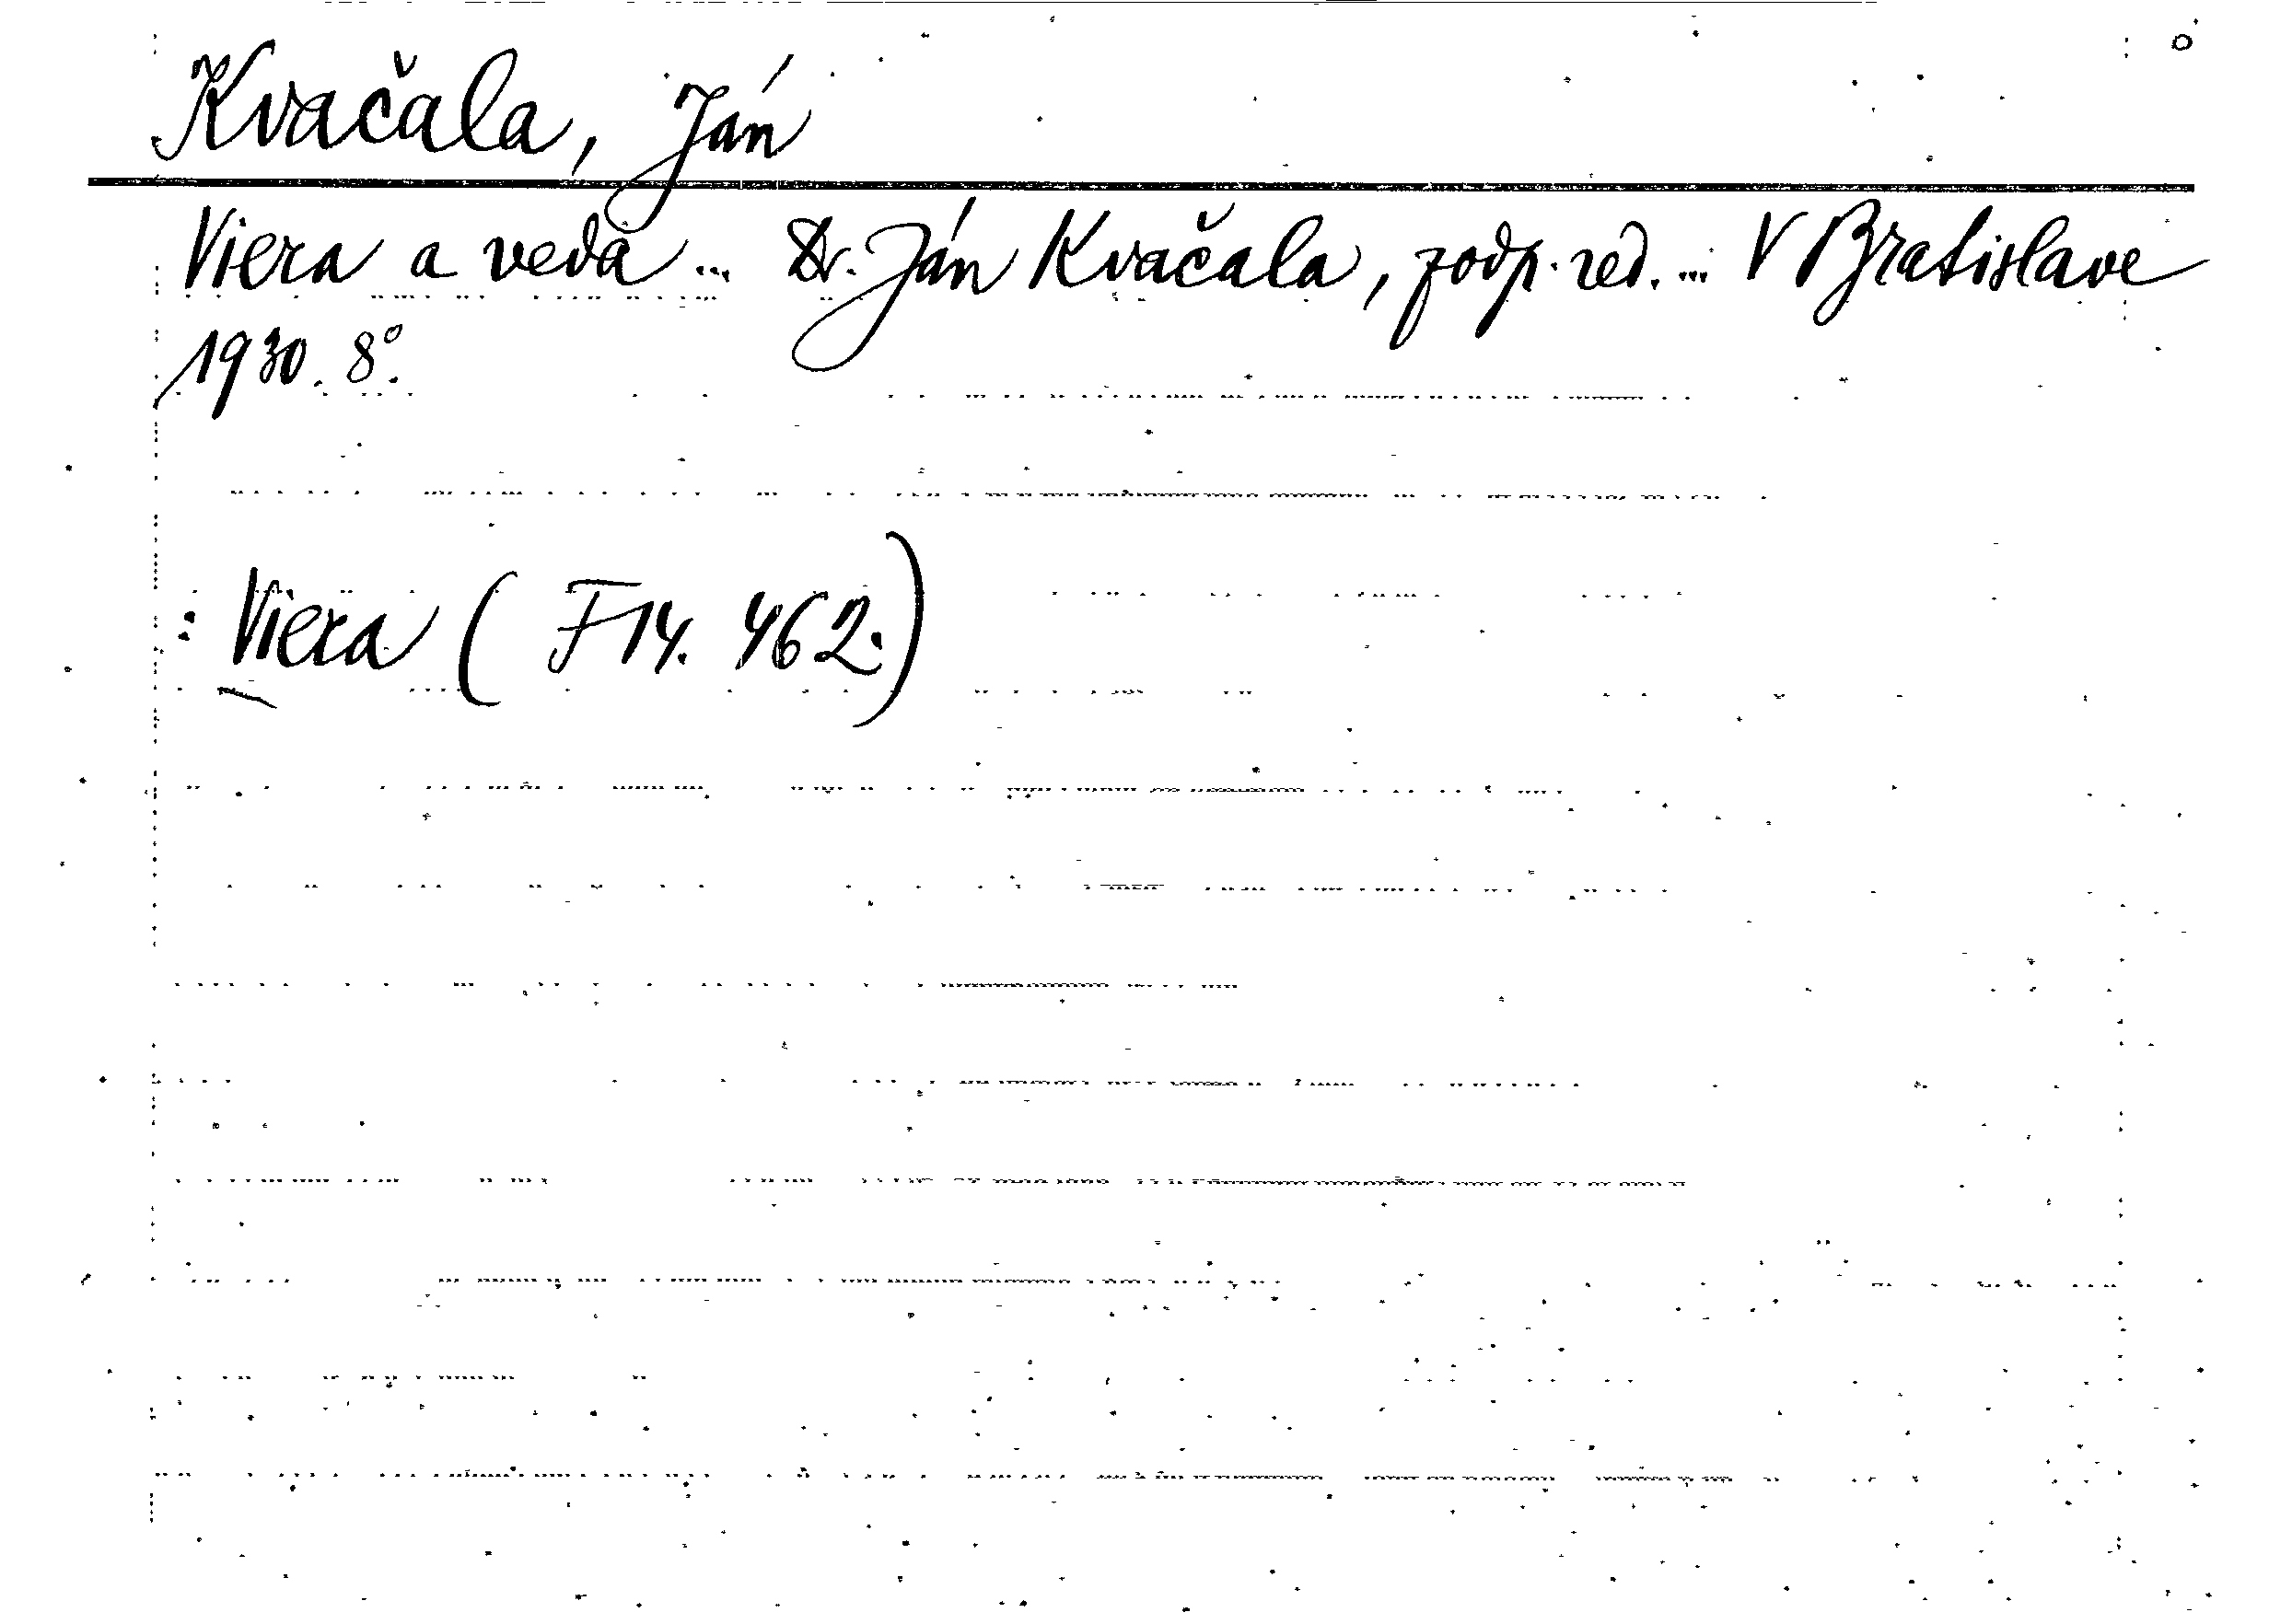 Kvačala, Ján
Viera a veda ... Dr. Ján Kvačala, zodp. red. ... V Bratislave
1930. 8°.
: Viera ( F 14. 462.)